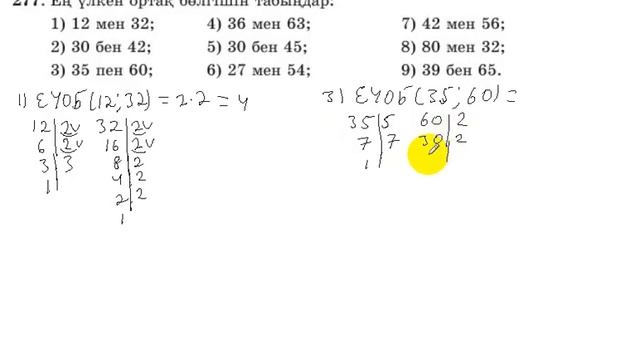 277. Ең үлкен ортақ бөлгішін табыңдар:
1) 12 мен 32; 4) 36 мен 63; 7) 42 мен 56;
2) 30 бен 42; 5) 30 бен 45; 8) 80 мен 32;
3) 35 пен 60; 6) 27 мен 54; 9) 39 бен 65.
1) ЕҮОБ(12; 32) = 2·2 = 4
3) ЕҮОБ(35; 60) =
12 | 2v 32 | 2v
6 | 2v 16 | 2v
3 | 3 8 | 2
1 4 | 2
2 | 2
1
35 | 5 60 | 2
7 | 7 30 | 2
1